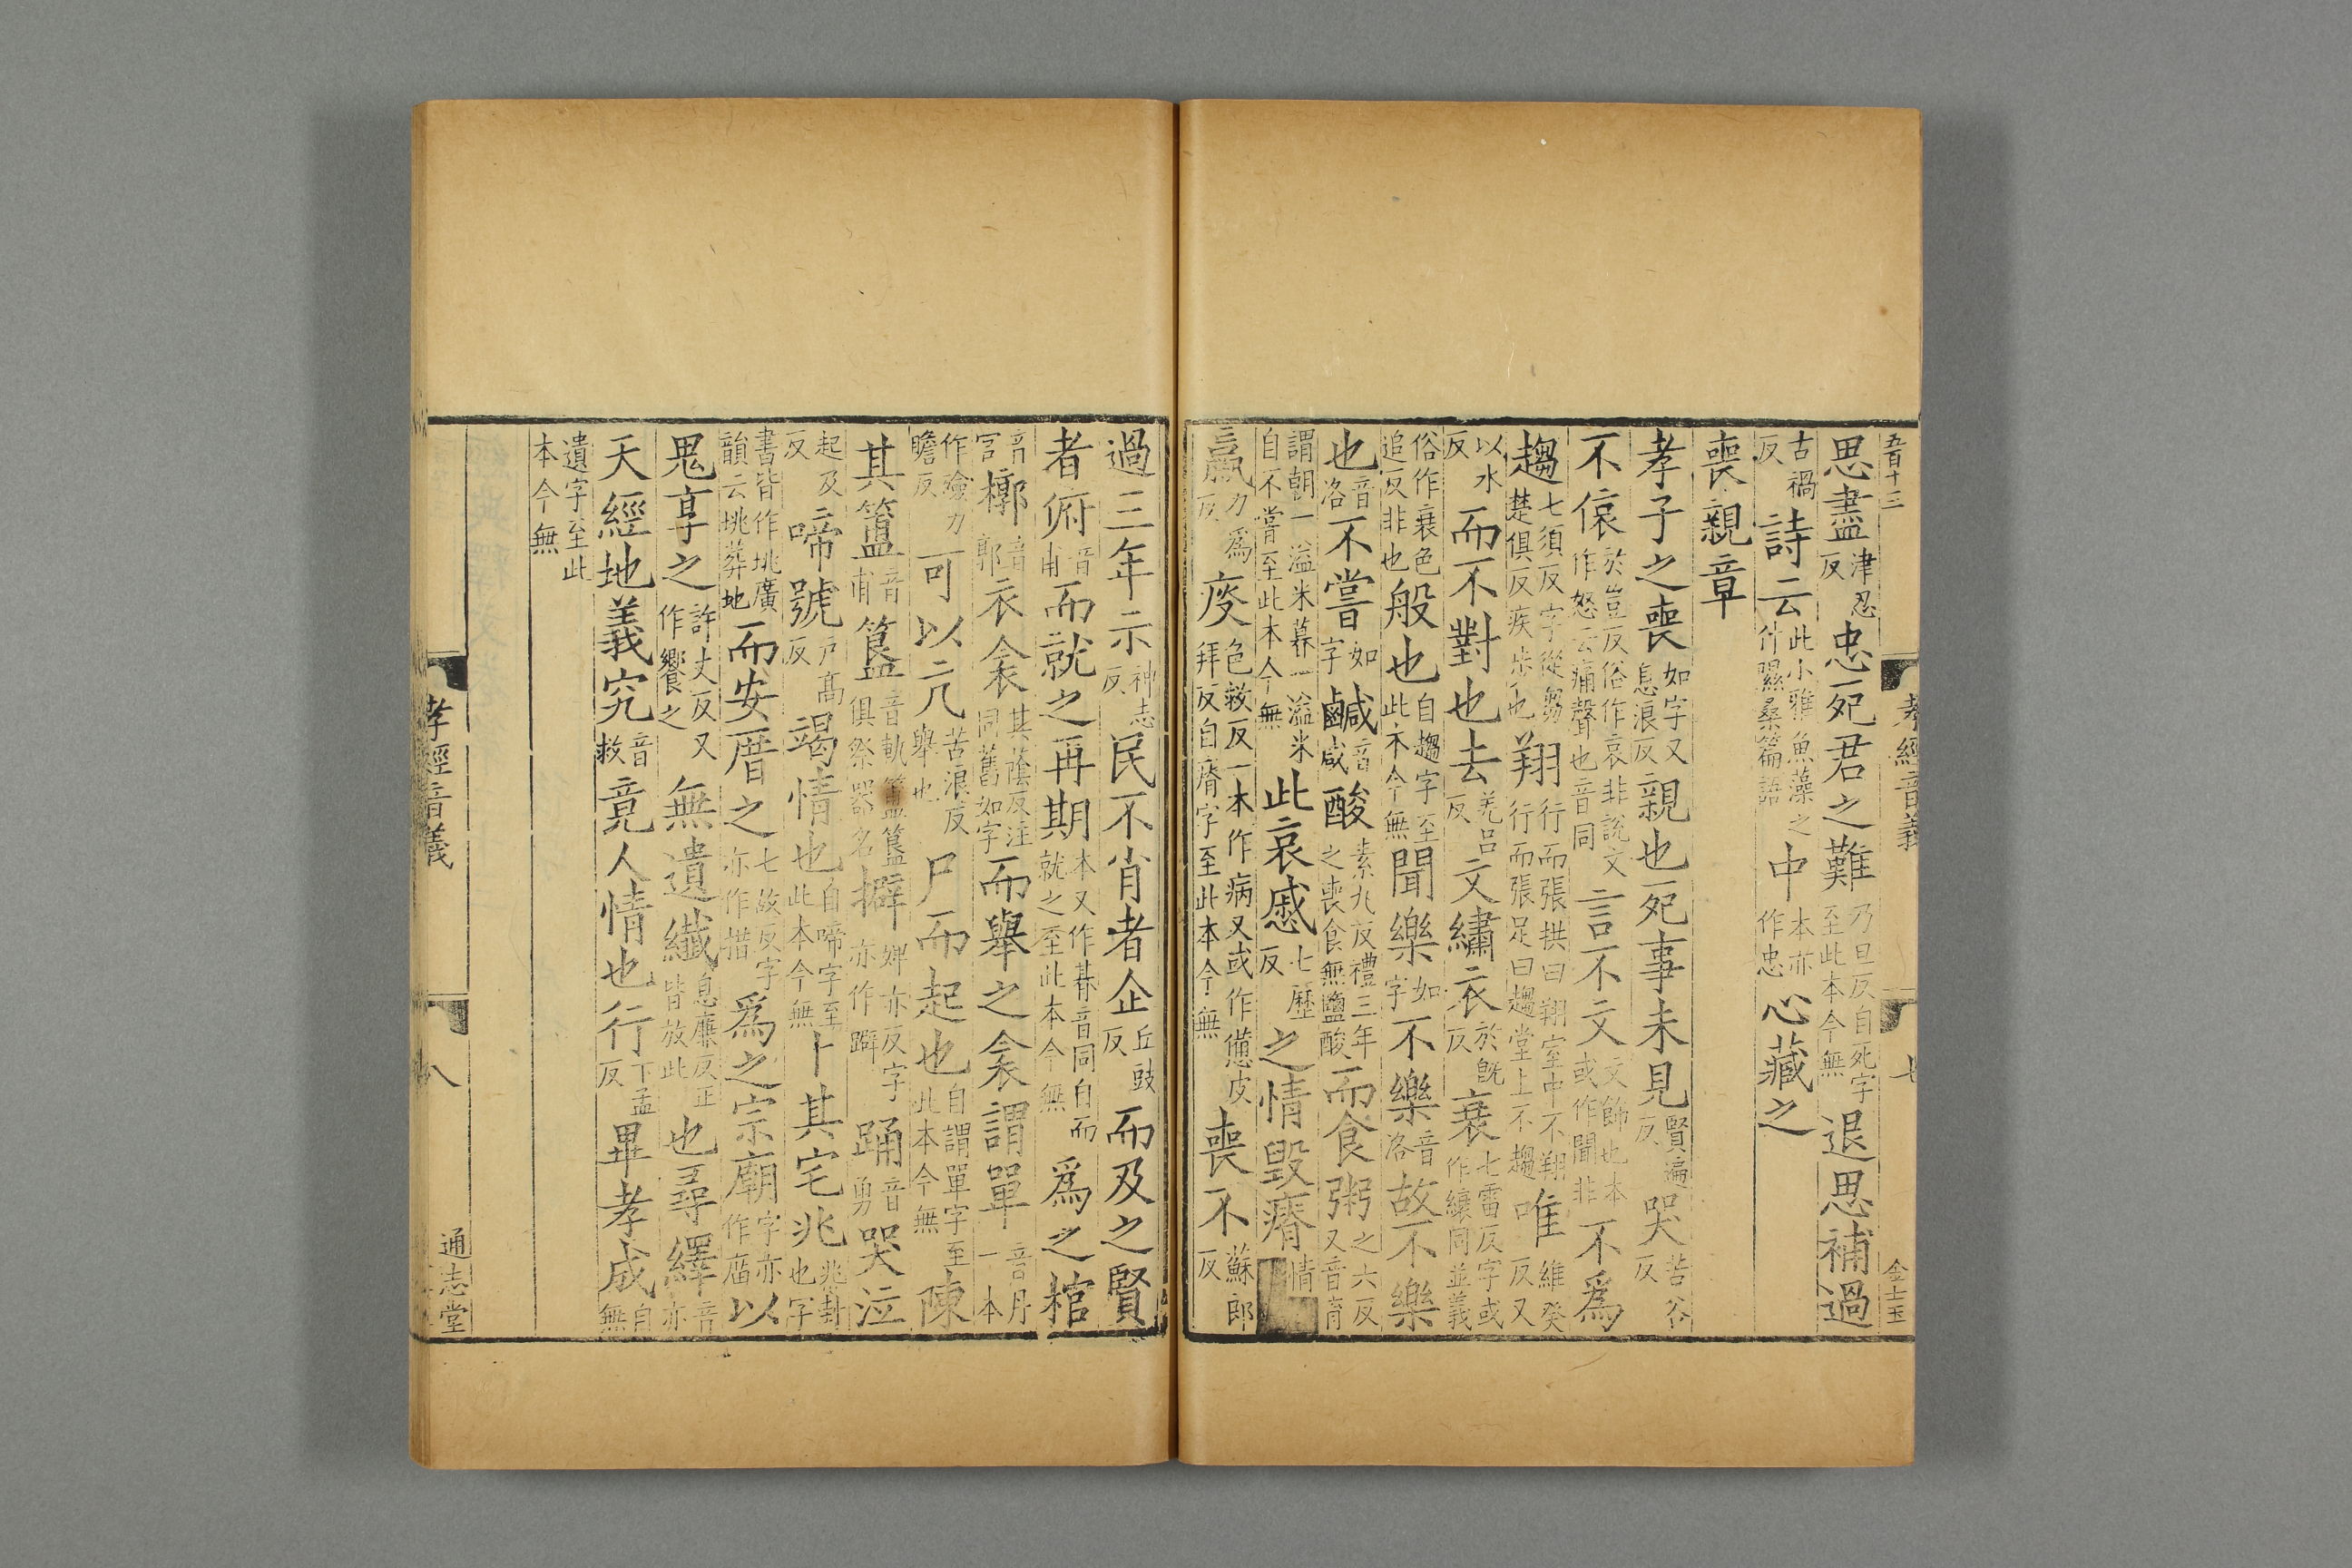 五百十三
孝經音義
七
金士玉
思盡津忍反忠死君之難乃旦反自死字至此本今無退思補過
古禍反詩云此小雅魚藻之什隰桑篇語中本亦作忠心藏之
喪親章
孝子之喪如字又息浪反親也死事未見賢遍反哭苦谷反
不偯於豈反俗作哀非說文作㥋云痛聲也音同言不文文飾也本或作聞非不爲
趨七須反字從芻楚俱反疾步也翔行而張拱曰翔室中不翔行而張足曰趨堂上不趨唯維癸反又
以水反而不對也去羌呂反文繡衣於旣反衰七雷反字或作縗同並義
俗作衰色追反非也般也自趨字至此本今無聞樂如字不樂音洛故不樂
也音洛不嘗如字鹹音咸酸素丸反禮三年之喪食無鹽酸而食粥之六反又音育
謂朝一溢米暮一溢米自不嘗至此本今無此哀慼七歷反之情毀瘠情
羸力爲反㾪色救反一本作病又或作憊皮拜反自瘠字至此本今無喪不蘇郎反
過三年示神志反民不肖者企丘豉反而及之賢
者俯音甫而就之再期本又作朞音同自而就之至此本今無爲之棺
音官槨音郭衣衾其蔭反注同舊如字而舉之衾謂單音丹一本
作殮力贍反可以亢苦浪反舉也尸而起也自謂單字至此本今無陳
其簠音甫簋音軌簠簋俱祭器名擗婢亦反字亦作躃踊音勇哭泣
起及反啼號戶高反竭情也自啼字至此本今無卜其宅兆兆卦也字
書皆作垗廣韻云垗葬地而安厝之七故反字亦作措爲之宗廟字亦作庿以
鬼享之許丈反又作饗之無遺纖息廉反正皆放此也尋繹音亦
天經地義究音救竟人情也行下孟反畢孝成自無
遺字至此本今無
孝經音義
八
通志堂